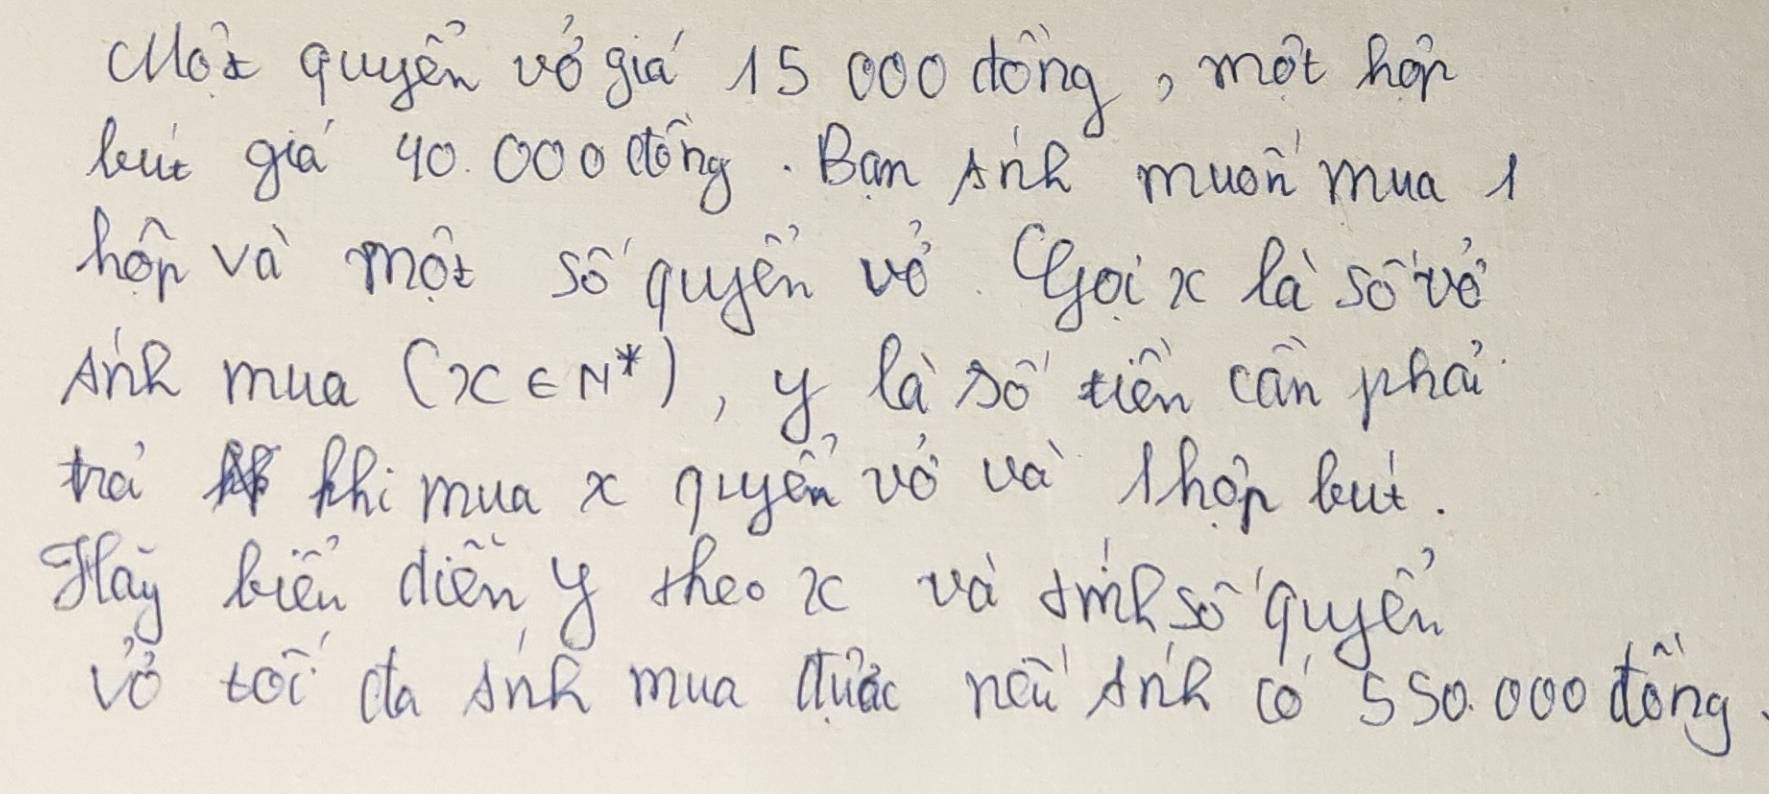 Một quyển vở giá 15 000 đồng, một hộp
bút giá 40.000 đồng. Bạn Ánh muốn mua 1
hộp và một số quyển vở. Gọi x là số vở
Ánh mua (x ∈ N*), y là số tiền cần phải
trả khi mua x quyển vở và 1 hộp bút.
Hãy biểu diễn y theo x và tính số quyển
vở tối đa Ánh mua được nếu Ánh có 550.000 đồng.